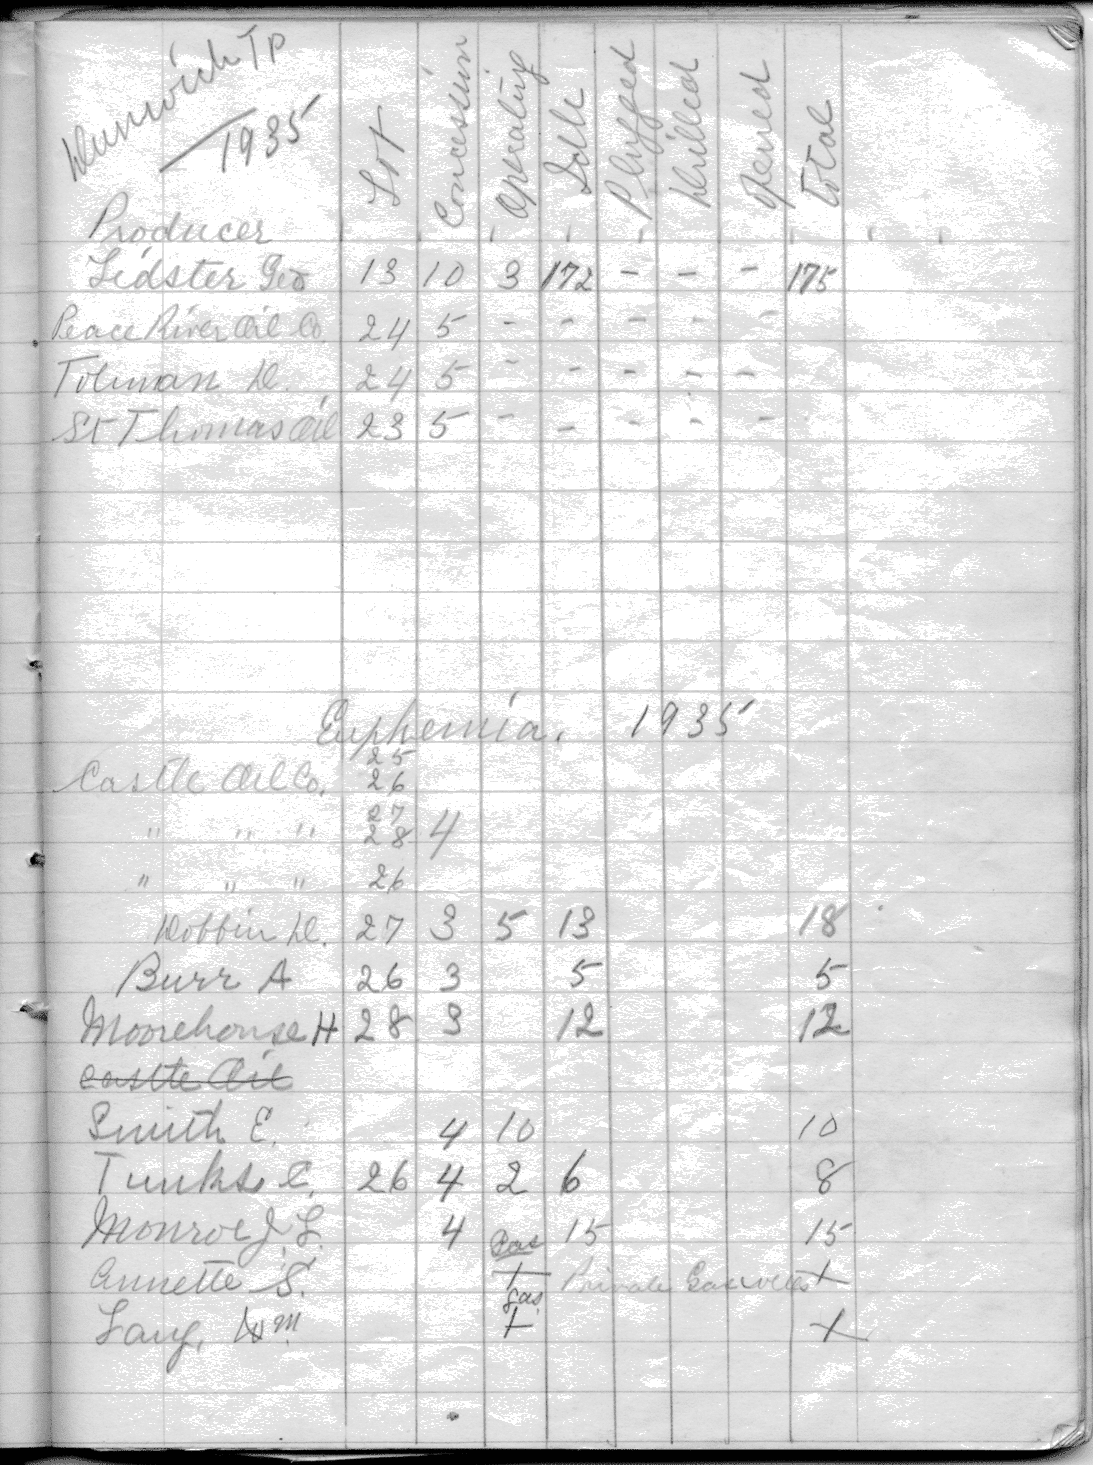 Dunwich TP
1935
Lot Concession Operating Idle Plugged Drilled Total
Producer
Lidster Geo 13 10 3 172 - - - 175
Peace River Oil Co. 24 5 - - - - -
Tolman D. 24 5 - - - - -
St Thomas Oil 23 5 - - - - -
Euphemia. 1935
25
Castle Oil Co. 26
27
" " " 28 4
" " " 26
Dobbin D. 27 3 5 13 18
Burr A 26 3 5 5
Moorehouse H 28 3 12 12
Castle Oil
Smith E. 4 10 10
Tunks C. 26 4 2 6 8
Monroe J. L. 4 15 15
Gas
Annette S. + Private Gas wells +
Gas
Lang, Wm + +